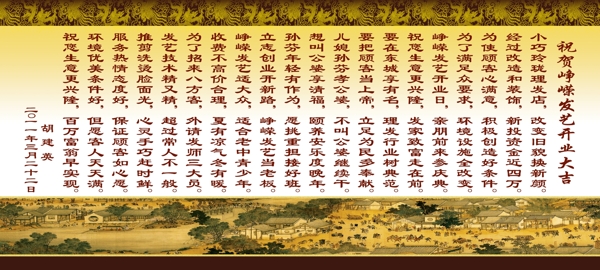 祝贺峥嵘发艺开业大吉
小巧玲珑理发店,改变旧貌换新颜。
经过改造和装饰,新投资金近四万。
为使顾客心满意,积极创造好条件。
为了满足众要求,环境设施多改变。
峥嵘发艺开业日,亲朋前来参庆典。
要在东城享有名,发家致富走在前。
要把顾客当上帝,理发行业树典范。
儿媳孙芬孝公婆,立足为民多奉献。
想叫公婆享清福,不叫公婆继续干。
孙芬年轻有作为,颐养安乐度晚年。
立志创业开新路,愿挑重担接好班。
峥嵘发艺适大众,峥嵘发艺当老板。
收费不高价合理,适合老中青少年。
为了招来八方客,夏有凉气冬有暖。
发艺技术精又精,外请发师三大员。
推剪洗烫脸面光,超过常人不一般。
服务热情态度好,心灵手巧赶时鲜。
环境优美条件好,保证顾客如心愿。
祝愿生意更兴隆,但愿客人天天满。
百万富翁早实现。
胡建英
二〇一一年三月二十二日